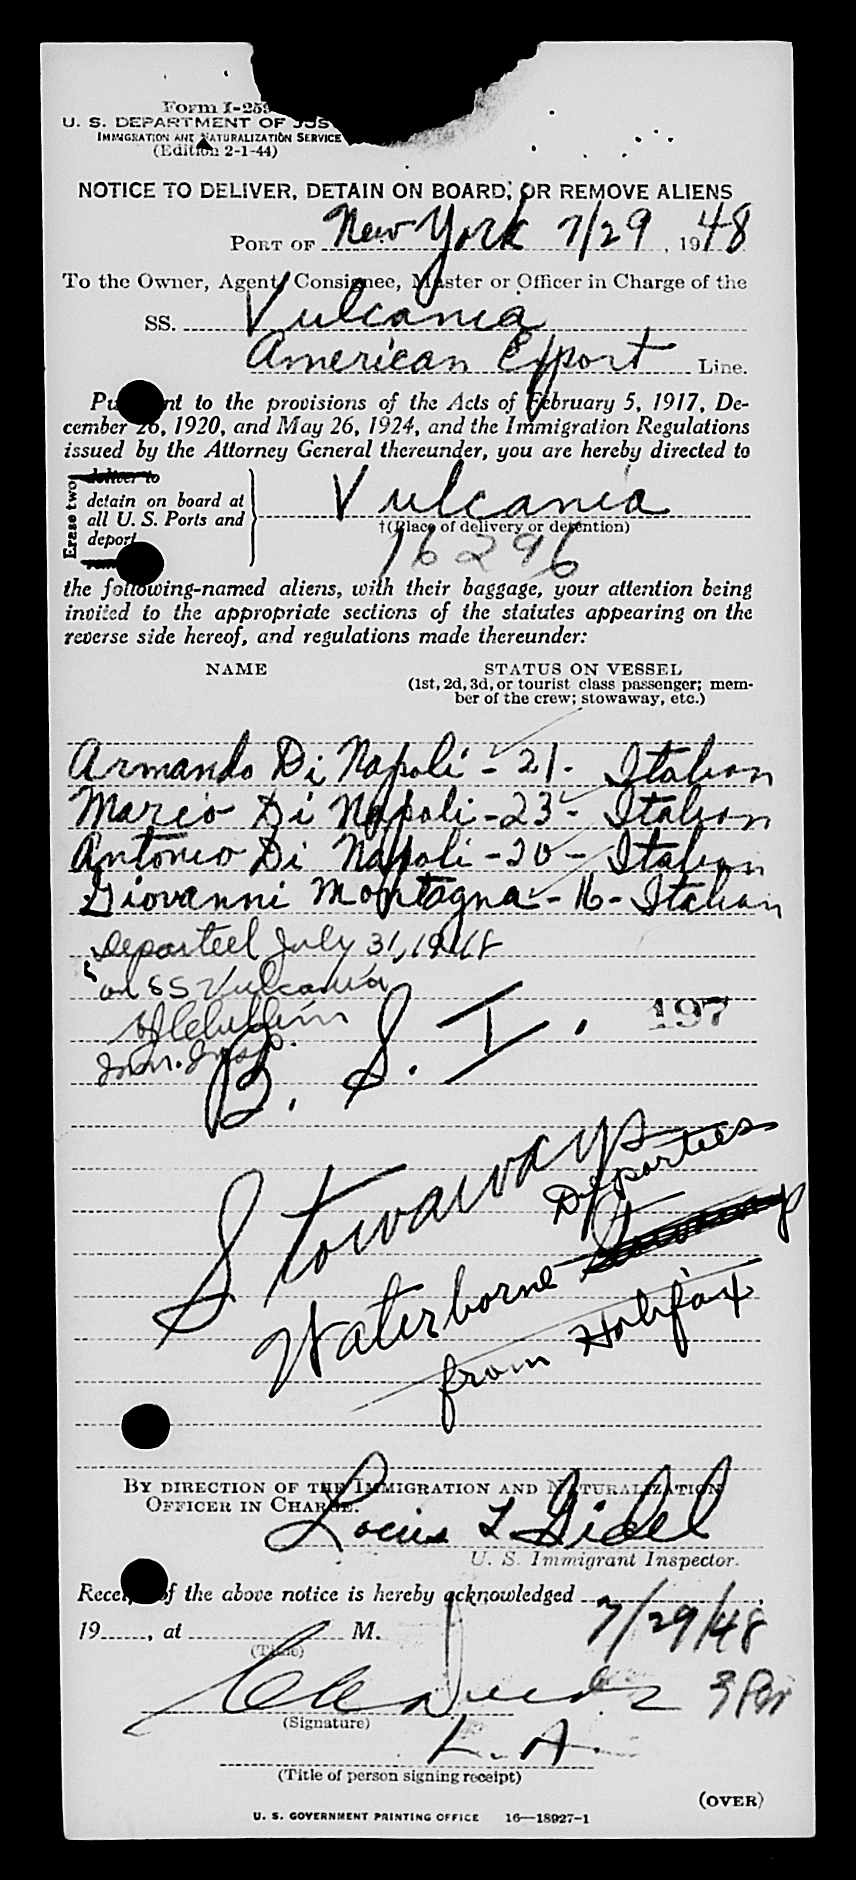 Form I-259
U. S. DEPARTMENT OF JUS
IMMIGRATION AND NATURALIZATION SERVICE
(Edition 2-1-44)
NOTICE TO DELIVER, DETAIN ON BOARD, OR REMOVE ALIENS
PORT OF New York 7/29, 1948
To the Owner, Agent, Consignee, Master or Officer in Charge of the
SS. Vulcania
American Export Line.
Pu nt to the provisions of the Acts of February 5, 1917, De-
cember 26, 1920, and May 26, 1924, and the Immigration Regulations
issued by the Attorney General thereunder, you are hereby directed to
Erase two
deliver to
detain on board at
all U. S. Ports and
deport
Vulcania
†(Place of delivery or detention)
16296
the following-named aliens, with their baggage, your attention being
invited to the appropriate sections of the statutes appearing on the
reverse side hereof, and regulations made thereunder:
NAME STATUS ON VESSEL
(1st, 2d, 3d, or tourist class passenger; mem-
ber of the crew; stowaway, etc.)
Armando Di Napoli - 21 - Italian
Mario Di Napoli - 23 - Italian
Antonio Di Napoli - 20 - Italian
Giovanni Montagna - 16 - Italian
Departed July 31, 1948
on SS Vulcania
Imm. Insp.
197
B. S. I.
Stowaways
Departees
Waterborne
from Halifax
BY DIRECTION OF THE IMMIGRATION AND NATURALIZATION
OFFICER IN CHARGE.
Louis L. Gidel
U. S. Immigrant Inspector.
Receipt of the above notice is hereby acknowledged
19 , at M.
7/29/48
(Time)
(Signature)
(Title of person signing receipt)
(OVER)
U. S. GOVERNMENT PRINTING OFFICE 16—18927-1